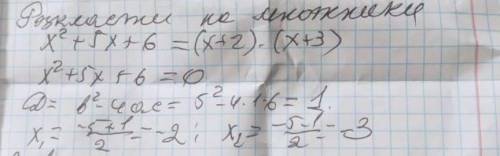 Розкласти на множники
x²+5x+6=(x+2)·(x+3)
x²+5x+6=0
D=b²-4ac=5²-4·1·6=1.
x₁=\frac{-5+1}{2}=-2; x₂=\frac{-5-1}{2}=-3